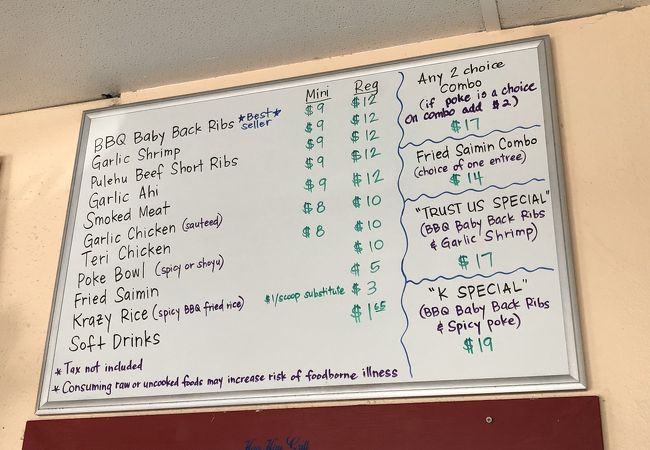 Mini Reg
BBQ Baby Back Ribs *Best seller* $9 $12
Garlic Shrimp $9 $12
Pulehu Beef Short Ribs $9 $12
Garlic Ahi $9 $12
Smoked Meat $9 $12
Garlic Chicken (sauteed) $8 $10
Teri Chicken $8 $10
Poke Bowl (spicy or shoyu) $10
Fried Saimin $5
Krazy Rice (spicy BBQ fried rice) $1/scoop substitute $3
Soft Drinks
* Tax not included
* Consuming raw or uncooked foods may increase risk of foodborne illness
Any 2 choice
combo
(if poke is a choice
on combo add $2)
$17
Fried Saimin Combo
(choice of one entree)
$14
"TRUST US SPECIAL"
(BBQ Baby Back Ribs
& Garlic Shrimp)
$17
"K SPECIAL"
(BBQ Baby Back Ribs
& Spicy poke)
$19